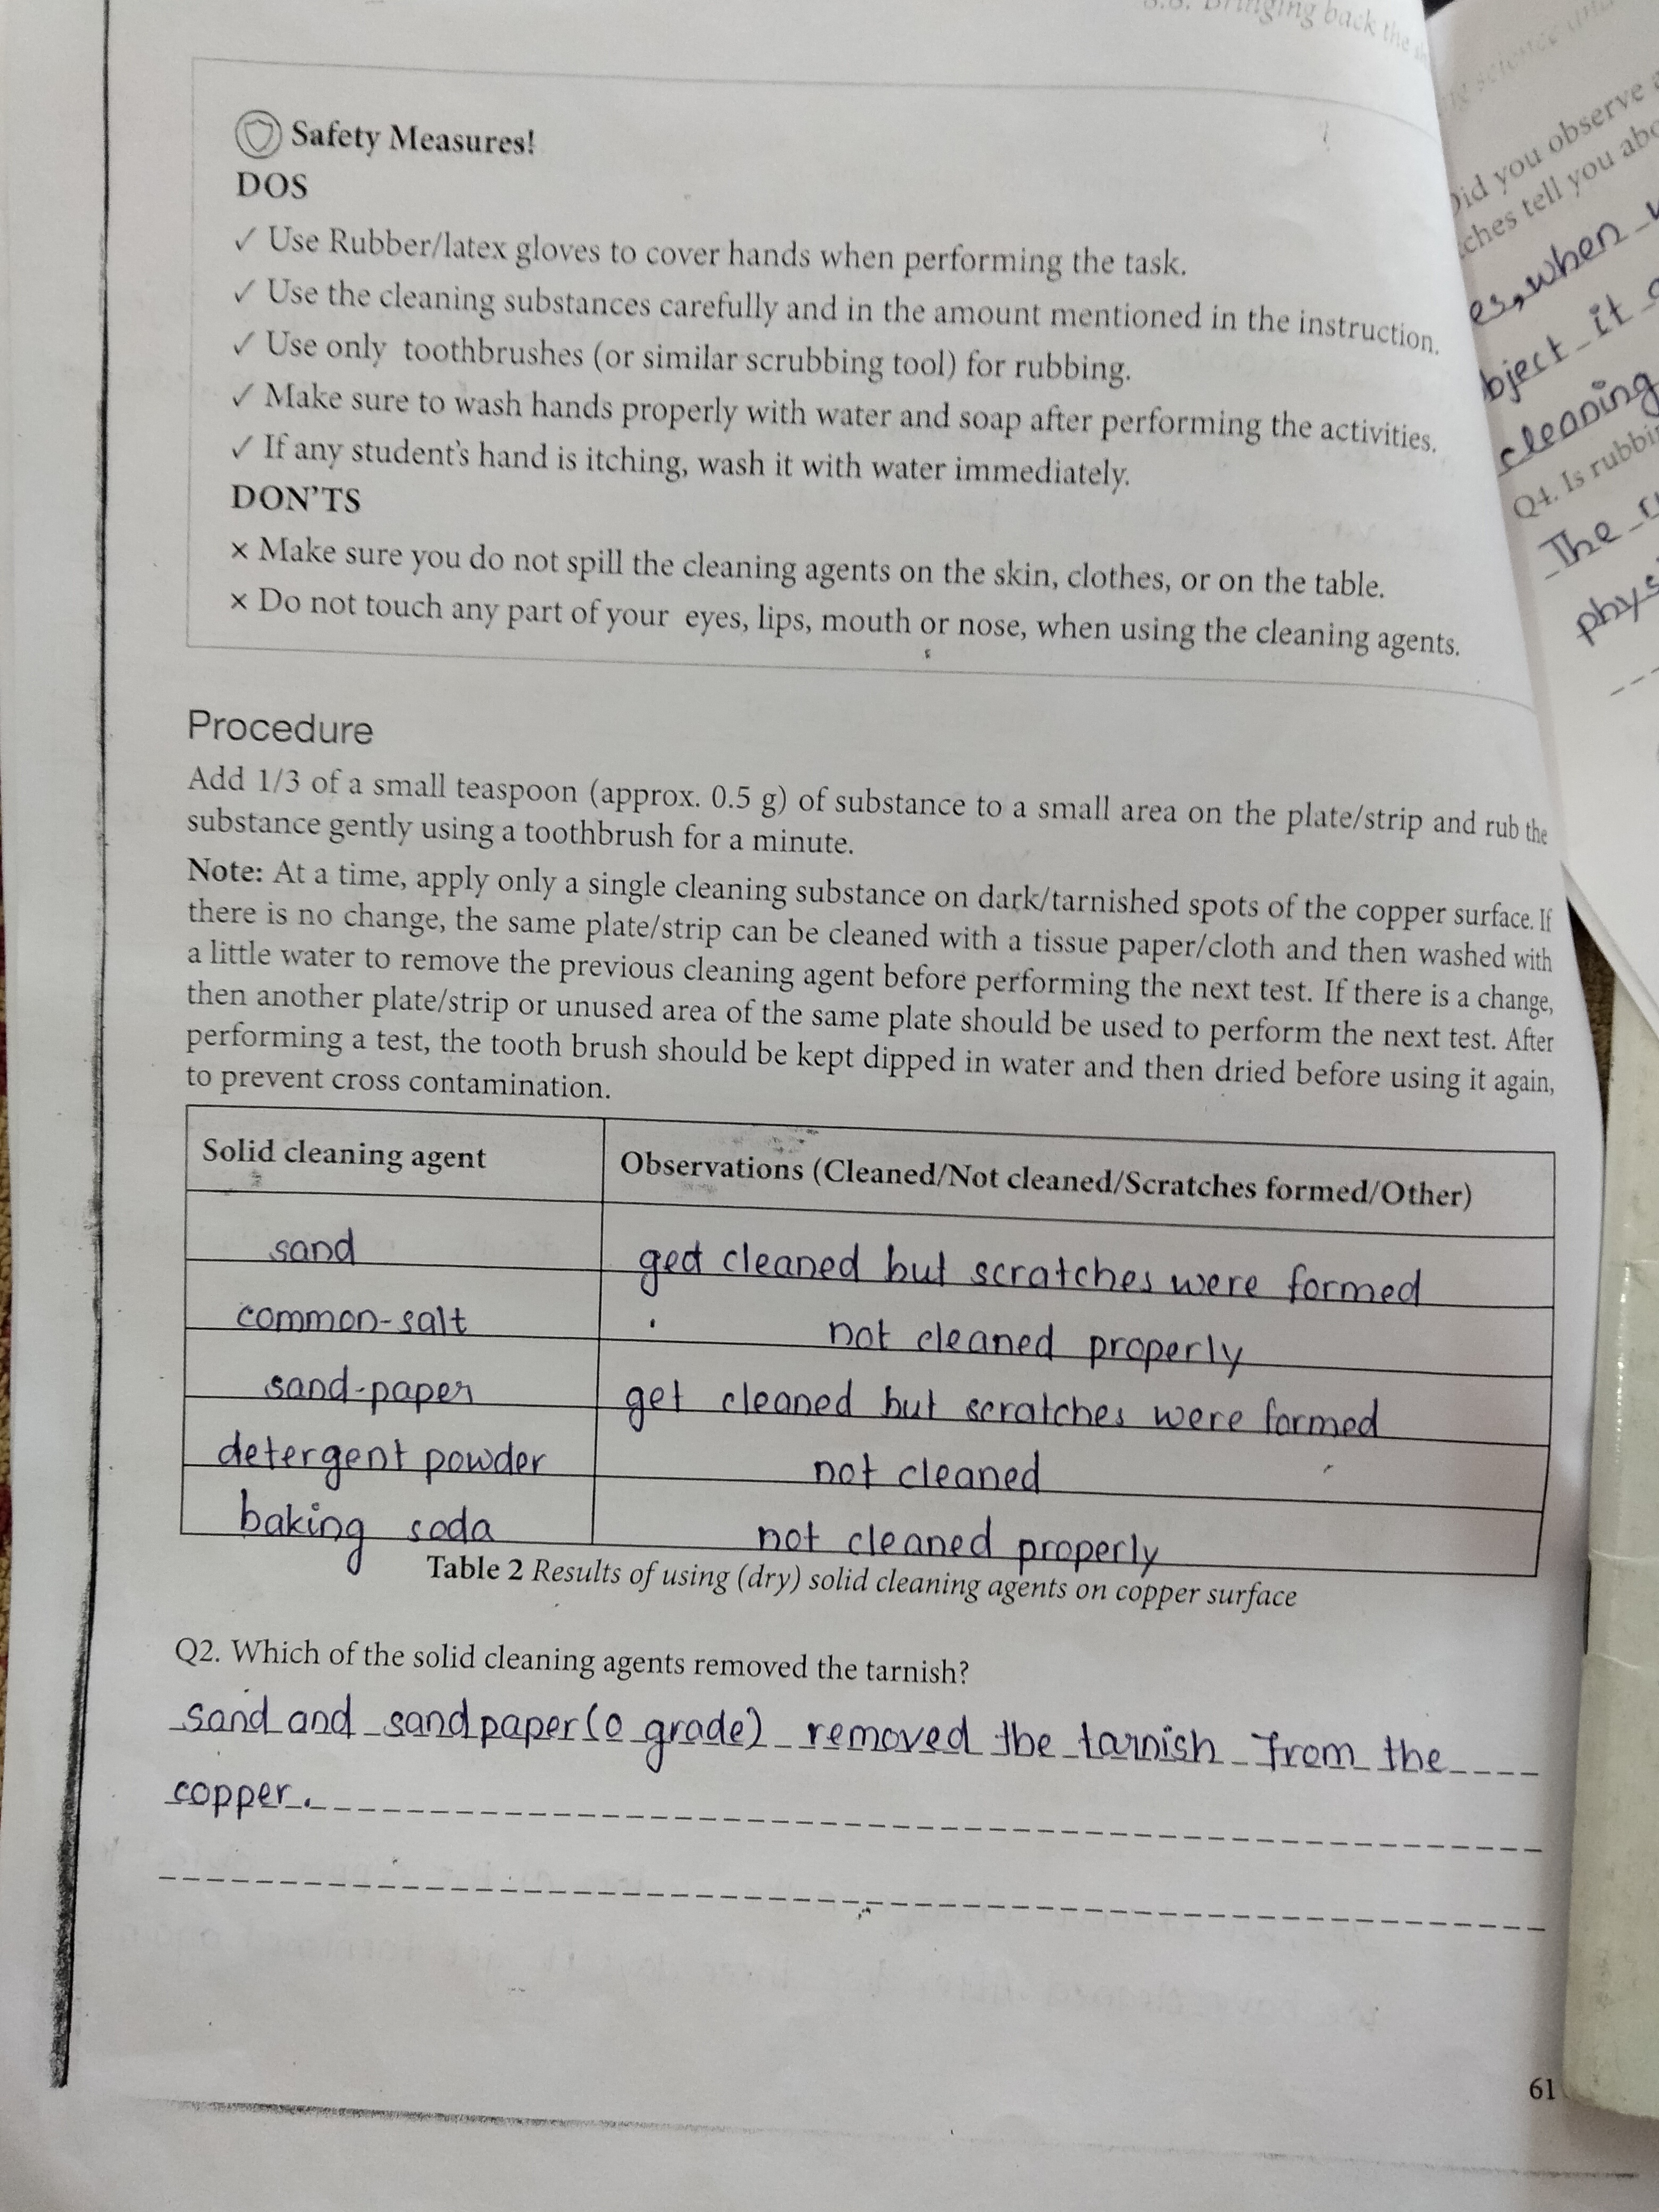 3.8. Bringing back the
Safety Measures!
DOS
✓ Use Rubber/latex gloves to cover hands when performing the task.
✓ Use the cleaning substances carefully and in the amount mentioned in the instruction.
✓ Use only toothbrushes (or similar scrubbing tool) for rubbing.
✓ Make sure to wash hands properly with water and soap after performing the activities.
✓ If any student's hand is itching, wash it with water immediately.
DON'TS
× Make sure you do not spill the cleaning agents on the skin, clothes, or on the table.
× Do not touch any part of your eyes, lips, mouth or nose, when using the cleaning agents.
Procedure
Add 1/3 of a small teaspoon (approx. 0.5 g) of substance to a small area on the plate/strip and rub the
substance gently using a toothbrush for a minute.
Note: At a time, apply only a single cleaning substance on dark/tarnished spots of the copper surface. If
there is no change, the same plate/strip can be cleaned with a tissue paper/cloth and then washed with
a little water to remove the previous cleaning agent before performing the next test. If there is a change,
then another plate/strip or unused area of the same plate should be used to perform the next test. After
performing a test, the tooth brush should be kept dipped in water and then dried before using it again,
to prevent cross contamination.
Solid cleaning agent Observations (Cleaned/Not cleaned/Scratches formed/Other)
sand ged cleaned but scratches were formed
common-salt not cleaned properly
sand-paper get cleaned but scratches were formed
detergent powder not cleaned
baking soda not cleaned properly
Table 2 Results of using (dry) solid cleaning agents on copper surface
Q2. Which of the solid cleaning agents removed the tarnish?
sand and sandpaper(0 grade) removed the tarnish from the
copper.
61
Did you observe
ches tell you
es, when
bject it
cleaning
Q4. Is
The